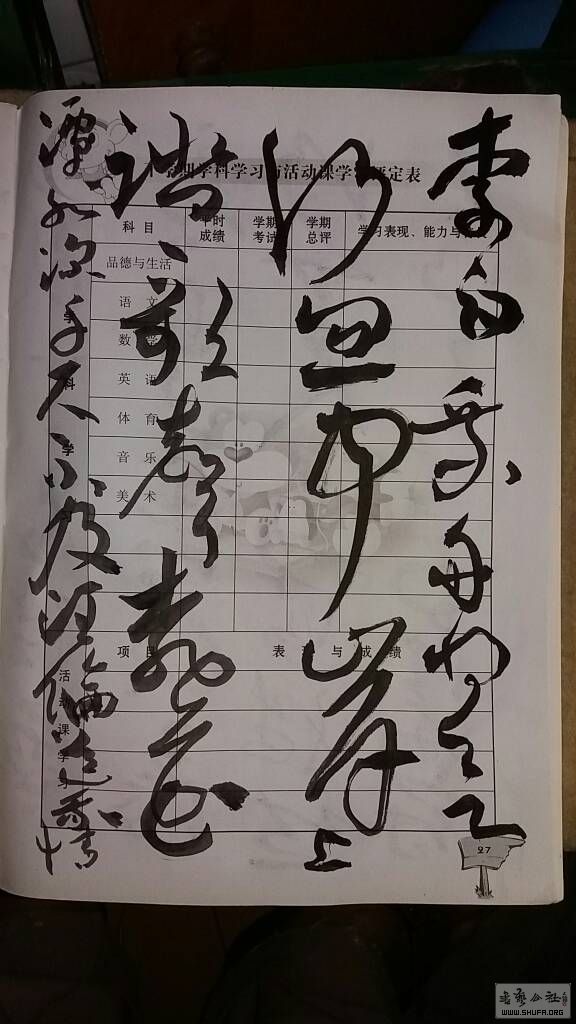 李白乘舟将欲
行忽闻岸上
踏歌声桃花
潭水深千尺不及汪伦送我情
学科学习与活动课学 评定表
科 目
平时成绩
学期考试
学期总评
学习表现、能力与
品德与生活
语 文
数 学
英 语
体 育
音 乐
美 术
学科学
项 目
表 现 与 成 绩
活动课学习
27
书艺公社
WWW.SHUFA.ORG